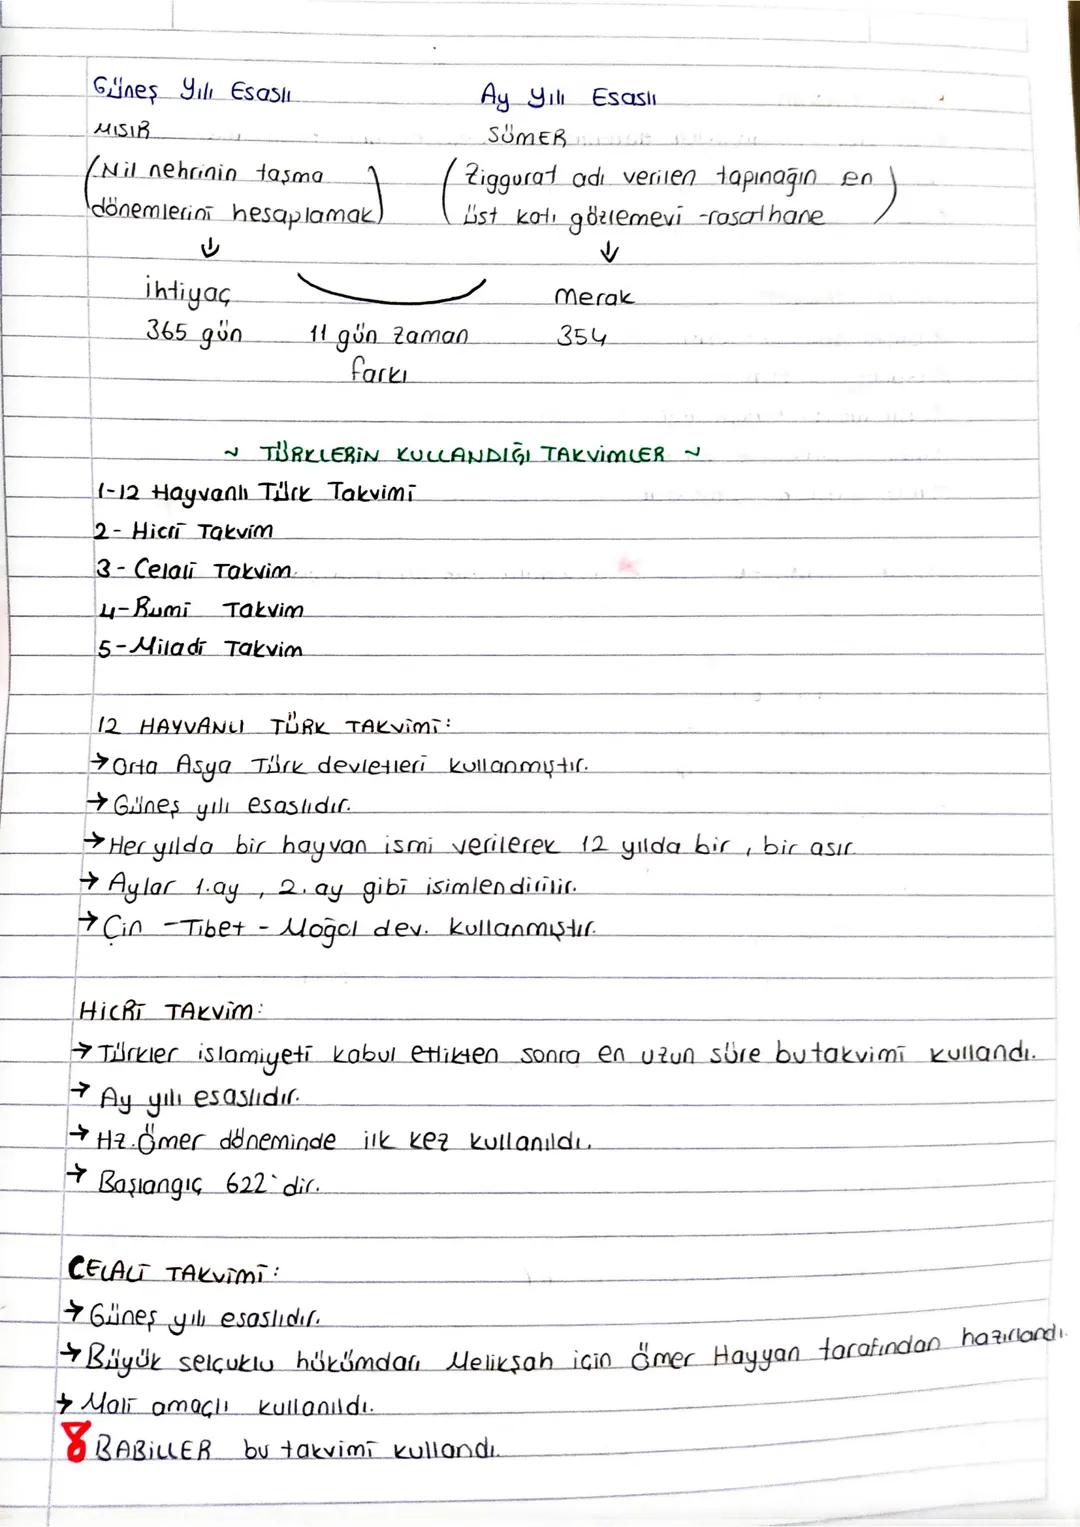 Güneş Yılı Esaslı
Ay Yılı Esaslı
MISIR
SÜMER
(Nil nehrinin taşma dönemlerini hesaplamak)
(Ziggurat adı verilen tapınağın en üst katı gözlemevi -rasathane)
↓
↓
ihtiyaç
merak
365 gün
11 gün zaman farkı
354
~ TÜRKLERİN KULLANDIĞI TAKVİMLER ~
1-12 Hayvanlı Türk Takvimi
2- Hicri Takvim
3- Celali Takvim.
4-Rumi Takvim
5-Miladi Takvim
12 HAYVANLI TÜRK TAKVİMİ:
→Orta Asya Türk devletleri kullanmıştır.
→Güneş yılı esaslıdır.
→Her yılda bir hayvan ismi verilerek 12 yılda bir, bir asır
→ Aylar 1.ay, 2. ay gibi isimlendirilir.
→Çin -Tibet - Moğol dev. kullanmıştır.
HİCRİ TAKVİM:
→Türkler islamiyeti kabul ettikten sonra en uzun süre bu takvimi kullandı.
→ Ay yılı esaslıdır.
→ Hz.Ömer döneminde ilk kez kullanıldı.
→ Başlangıç 622'dir.
CELALİ TAKVİMİ:
→Güneş yılı esaslıdır.
→Büyük selçuklu hükümdarı Melikşah için Ömer Hayyan tarafından hazırlandı.
→ Mali amaçlı kullanıldı.
8 BABİLLER bu takvimi kullandı.